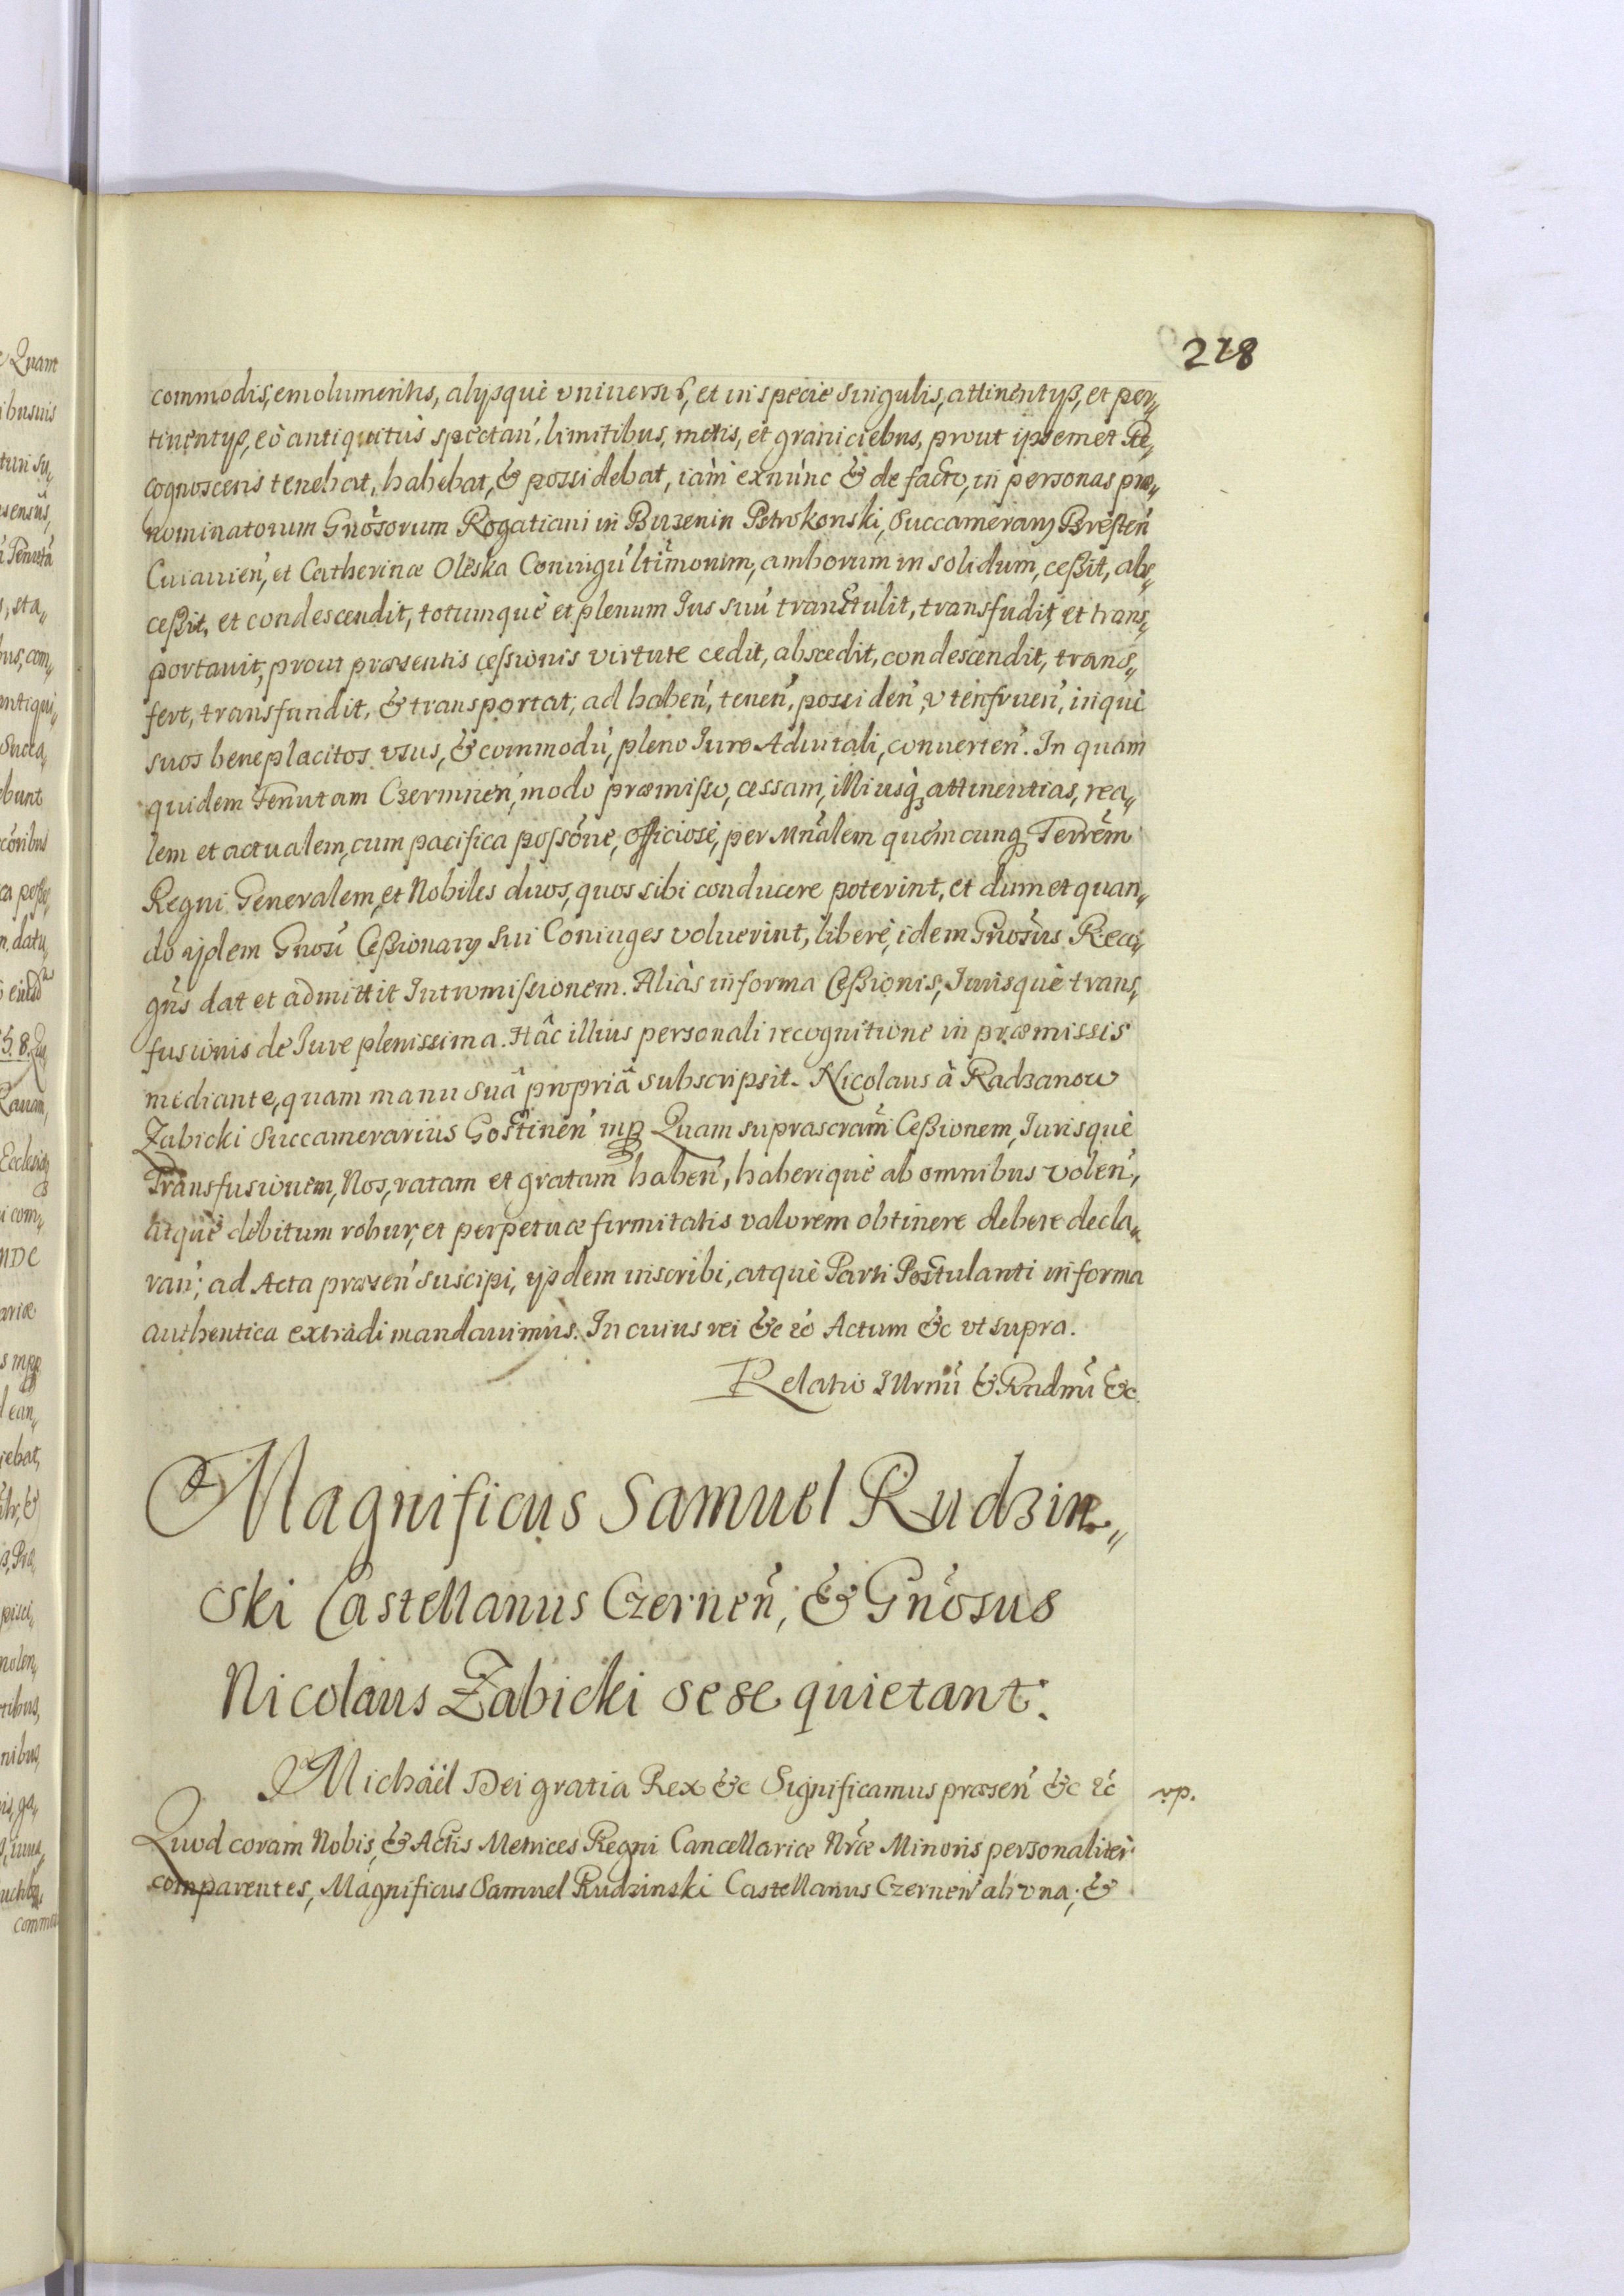 218
commodis, emolumentis, alijsquè vniuersis, et in specie singulis, attinentijs, et per„
tinentijs, eò antiquitùs spectan̄, limitibus, metis, et graniciebus, prout ipsemet Re„
cognoscens tenebat, habebat, & possidebat, iàm exnùnc & de facto, in personas præ„
nominatorum Gnōsorum Rogatiani in Buzenin Petrokonski, Succamerarij Bresten̄
Cuiauien̄, et Catherinæ Oleska Coniugū ltīmorum, amborum in solidum, ceßit, abs„
ceßit, et condescendit, totumquè et plenum Ius suū transtulit, transfudit, et trans„
portauit, prout præsentis cessionis virtute cedit, abscedit, condescendit, trans„
fert, transfundit, & transportat, ad haben̄, tenen̄, possiden̄, vtenfruen̄, inquè
suos beneplacitos vsus, & commodū, pleno Iure Aduitali, conuerten̄. In quam
quidem Tenutam Czerminen̄, modo præmisso, cessam, illiusq̃ attinentias, rea„
lem et actualem, cum pacifica possōne, officiosè, per Mnālem quemcunq̃ Terrēm
Regni Generalem, et Nobiles duos, quos sibi conducere poterint, et dum et quan„
do ijdem Gnōsi Ceßionarij sui Coniuges voluerint, liberè, idem Gnōsus Reco„
gn̄s dat et admittit Intromissionem. Aliàs in forma Ceßionis, Iurisquè trans„
fusionis de Iure plenissima. Hâc illius personali recognitione in præmissis
mediante, quam manu suâ propriâ subscripsit. Nicolaus à Radzanow
Zabicki Succamerarius Gostinen̄ mp Quam suprascrām Ceßionem, Iurisquè
Transfusionem, Nos, ratam et gratam haben̄, haberiquè ab omnibus volen̄,
atquè debitum robur, et perpetuæ firmitatis valorem obtinere debere decla„
ran̄; ad Acta præsen̄ suscipi, ijsdem inscribi, atquè Parti Postulanti in forma
authentica extradi mandauimus. In cuius rei &c &c Actum &c vt supra.
Relatio Illrmī & Rndmī &c
Magnificus Samuel Rudzin„
ski Castellanus Czernen̄, & Gnōsus
Nicolaus Zabicki sese quietant.
Michäël Dei gratia Rex &c Significamus præsen̄ &c &c rp.
Quod coram Nobis, & Actis Metrices Regni Cancellariæ Nrǣ Minoris personalitèr
comparentes, Magnificus Samuel Rudzinski Castellanus Czernen̄ ab vna; &